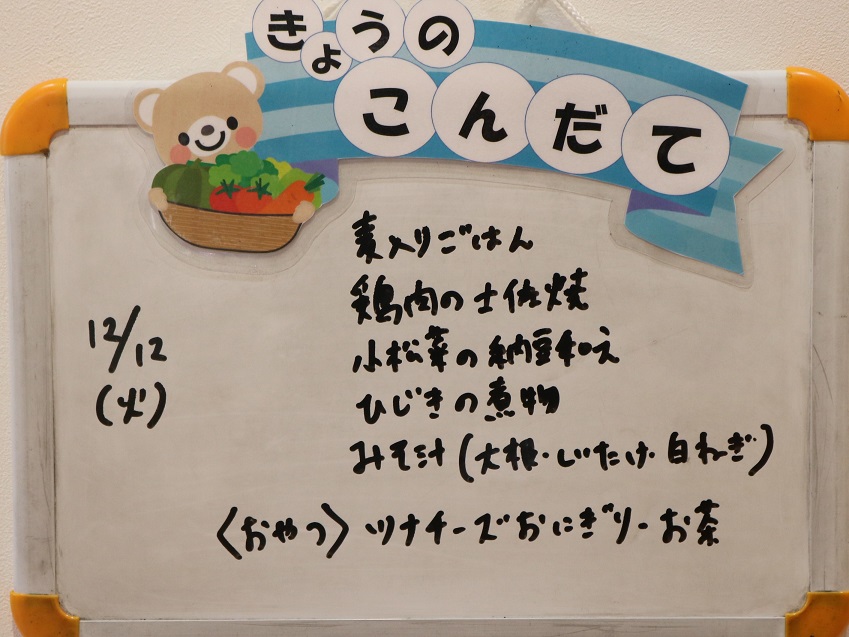 きょうの
こんだて
12/12
(火)
麦入りごはん
鶏肉の土佐焼
小松菜の納豆和え
ひじきの煮物
みそ汁(大根・しいたけ・白ねぎ)
〈おやつ〉ツナチーズおにぎり・お茶